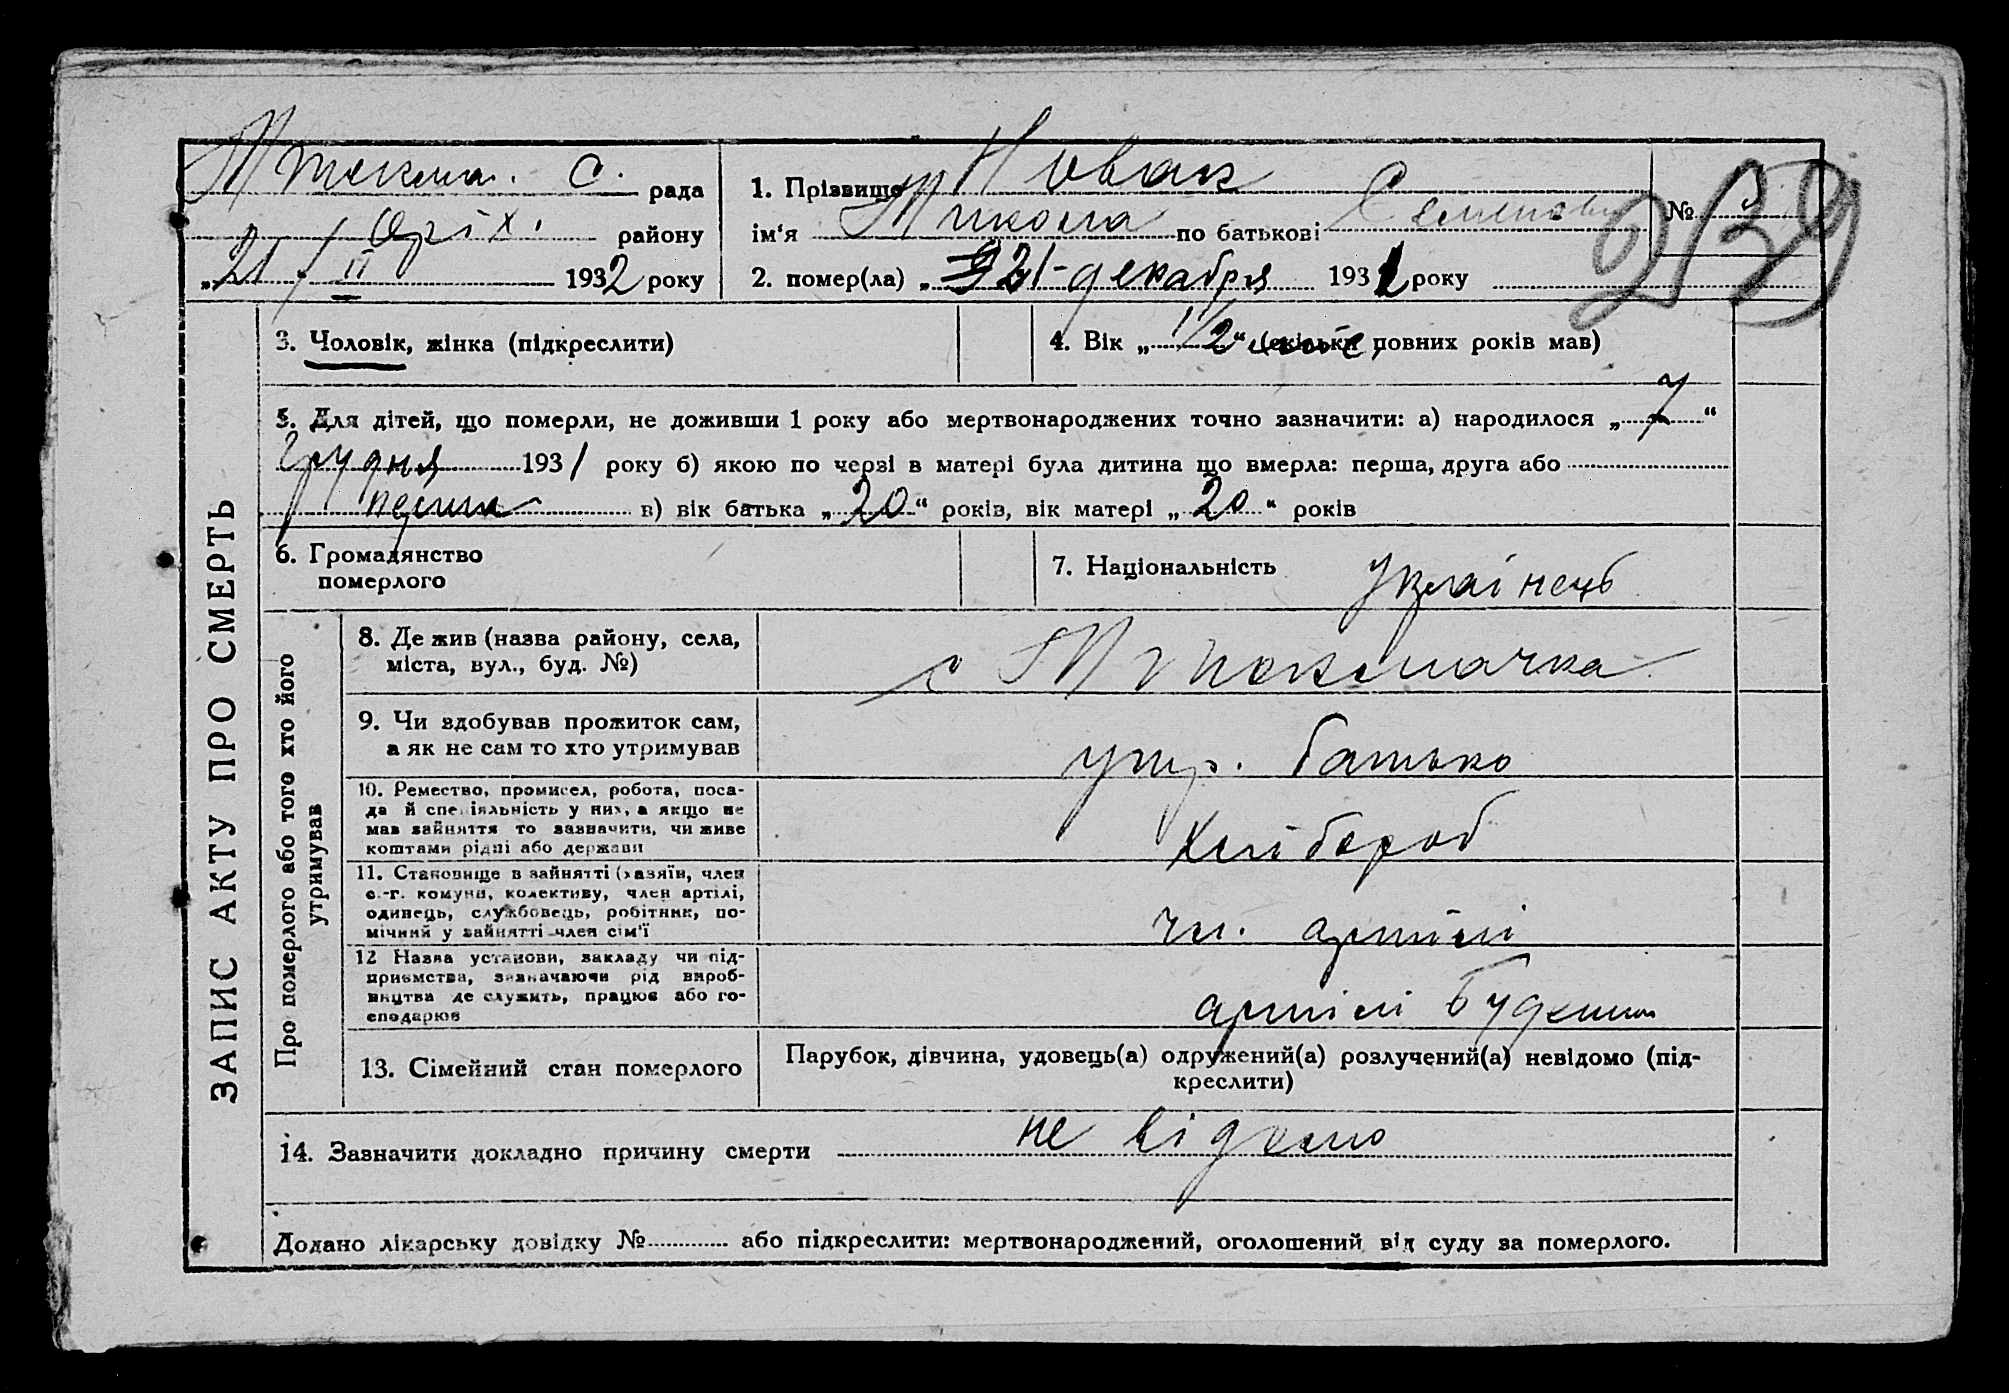 М Токмач. С. рада
Оріх. району
„21 / II 1932 року
1. Прізвище Новак
ім'я Микола по батькові Семенович
№ 3
239
2. помер(ла) „21 декабря 1931 року
ЗАПИС АКТУ ПРО СМЕРТЬ
3. Чоловік, жінка (підкреслити)
4. Вік „1/2“ (скільки повних років мав)
5. Для дітей, що померли, не доживши 1 року або мертвонароджених точно зазначити: а) народилося „7“
Грудня 1931 року б) якою по черзі в матері була дитина що вмерла: перша, друга або
перша в) вік батька „20“ років, вік матері „20“ років
6. Громадянство
померлого
7. Національність Українець
Про померлого або того хто його
утримував
8. Де жив (назва району, села,
міста, вул., буд. №)
с М Токмачка
9. Чи здобував прожиток сам,
а як не сам то хто утримував
утр. батько
10. Ремество, промисел, робота, поса-
да й спеціяльність у них, а якщо не
мав зайняття то зазначити, чи живе
коштами рідні або держави
Хлібороб
11. Становище в зайнятті (хазяїн, член
с.-г. комуни, колективу, член артілі,
одинець, службовець, робітник, по-
мічний у зайнятті член сім'ї
чл. артілі
12 Назва установи, закладу чи під-
приємства, зазначаючи рід вироб-
ництва де служить, працює або го-
сподарює
артілі Буденн
13. Сімейний стан померлого
Парубок, дівчина, удовець(а) одружений(а) розлучений(а) невідомо (під-
креслити)
14. Зазначити докладно причину смерти не відомо
Додано лікарську довідку № або підкреслити: мертвонароджений, оголошений від суду за померлого.